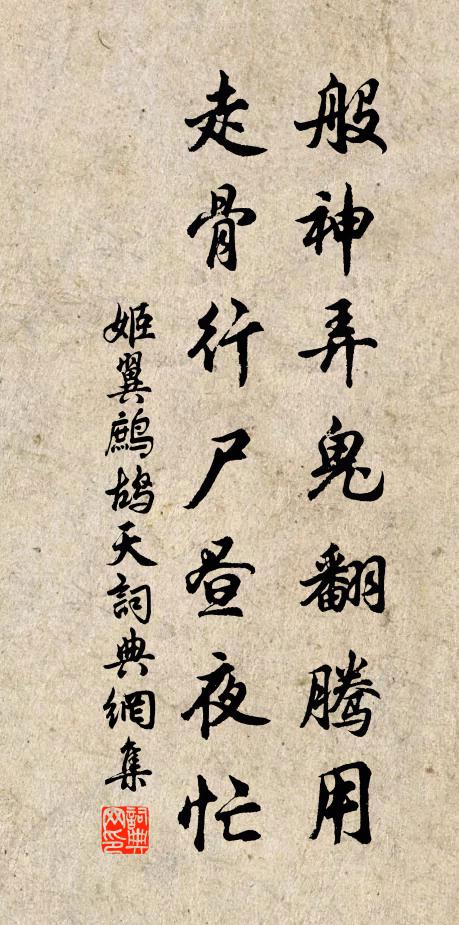 般神弄鬼翻騰用
走骨行尸昼夜忙
姬翼鷓鴣天詞典網集
詞典網印